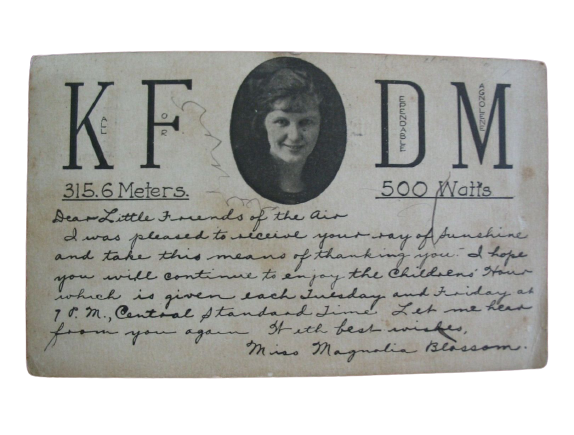 K F D M
ALL FOR DEPENDABLE MAGNOLENE
315.6 Meters. 500 Watts
Dear Little Friends of the Air
I was pleased to receive your ray of sunshine
and take this means of thanking you. I hope
you will continue to enjoy the Childrens' Hour
which is given each Tuesday and Friday at
7 P.M., Central Standard Time. Let me hear
from you again With best wishes,
Miss Magnolia Blossom.